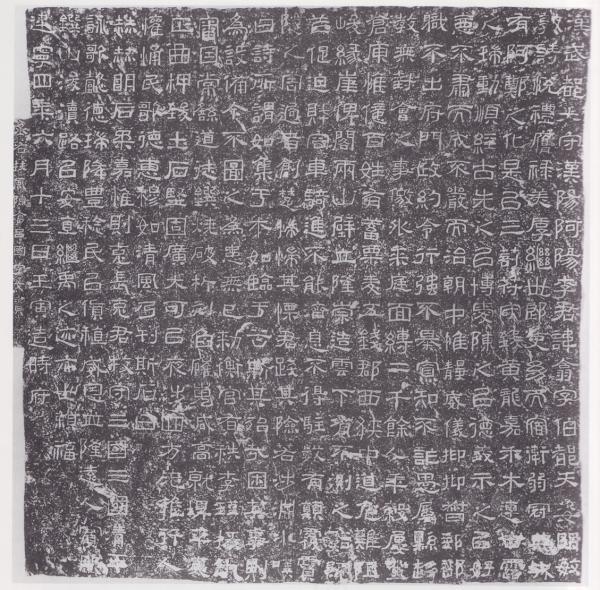 漢武都太守漢陽阿陽李君諱翕字伯都天姿明敏
敦詩悅禮膺祿美厚繼世郎吏幼而宿衛弱冠典城
有阿鄭之化是以三剖符守致黃龍嘉禾木連甘露
之瑞動順經古先之以博愛陳之以德義示之以好
惡不肅而成不嚴而治朝中惟靜威儀抑抑督郵部
職不出府門政約令行強不暴寡知不詐愚屬縣趍
教無對會之事傲外來庭面縛二千餘人年穀屢登
倉庾惟億百姓有蓄粟麥五錢郡西狹中道危難阻
峻緣崖俾閣兩山壁立隆崇造雲下有不測之谿阨
苲促迫財容車騎進不能濟息不得駐數有顛覆霣
隧之害過者創楚惴惴其慄君踐其險若涉淵冰嘆
曰詩所謂如集于木如臨于谷斯其殆哉困其事則
為設備今不圖之為患無已勑衡官有秩李瑾掾仇
審因常繇道徒鐉燒破析刻臽磪嵬減高就埤平夷
正曲柙致土石堅固廣大可以夜涉四方无雍行人
懽悀民歌德惠穆如清風乃刊斯石曰
赫赫明后柔嘉惟則克長克君牧守三國三國清平
詠歌懿德瑞降豐稔民以貨稙威恩並隆遠人賓服
鐉山浚瀆路以安直繼禹之迹亦世賴福
建寧四年六月十三日壬寅造時府